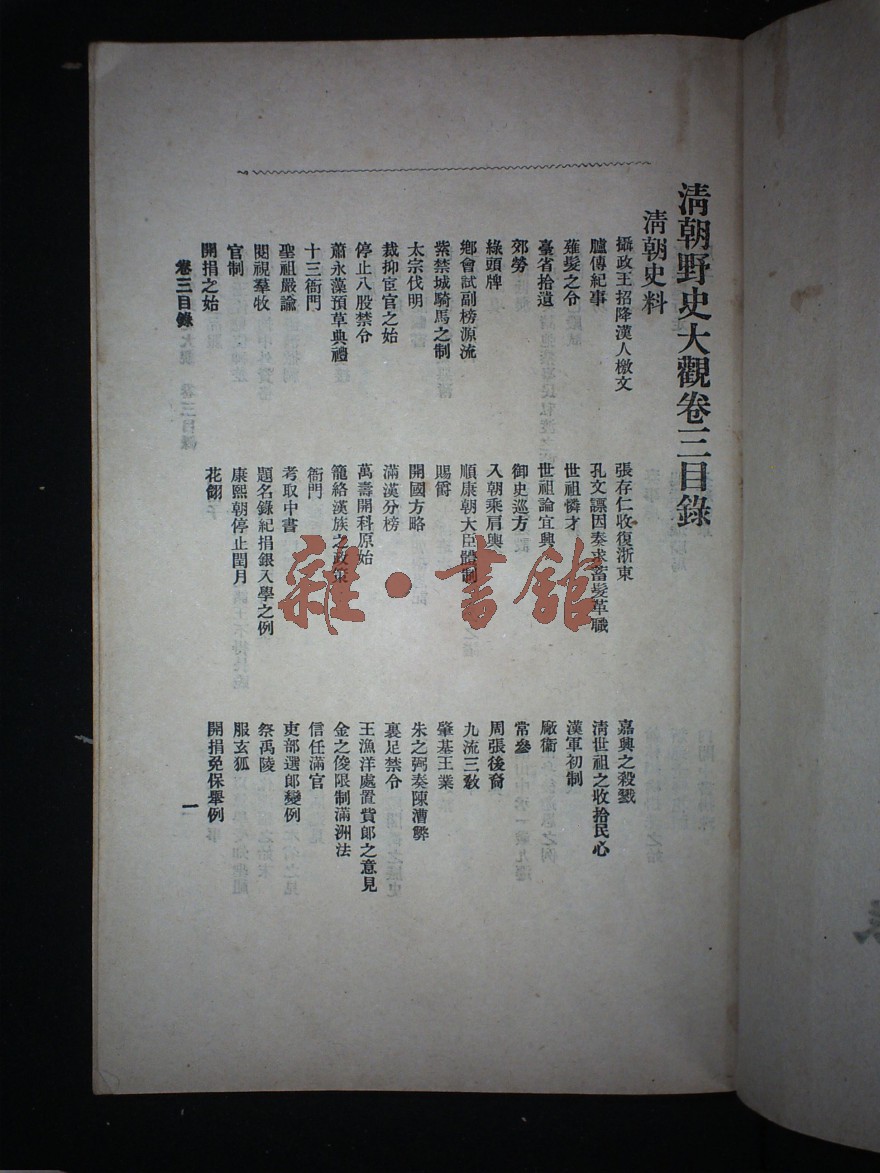 清朝野史大觀卷三目錄
清朝史料
攝政王招降漢人檄文
張存仁收復浙東
嘉興之殺戮
臚傳紀事
孔文謤因奏求蓄髮革職
清世祖之收拾民心
薙髮之令
世祖憐才
漢軍初制
臺省拾遺
世祖論宜興
廠衞
郊勞
御史巡方
常參
綠頭牌
入朝乘肩輿
周張後裔
鄉會試副榜源流
順康朝大臣體制
九流三教
紫禁城騎馬之制
賜爵
肇基王業
太宗伐明
開國方略
朱之弼奏陳漕弊
裁抑宦官之始
滿漢分榜
裹足禁令
停止八股禁令
萬壽開科原始
王漁洋處置貲郎之意見
蕭永藻預草典禮
籠絡漢族之政策
金之俊限制滿洲法
十三衙門
衙門
信任滿官
聖祖嚴諭
考取中書
吏部選郎變例
閱視羣牧
題名錄紀捐銀入學之例
祭禹陵
官制
康熙朝停止閏月
服玄狐
開捐之始
花翎
開捐免保舉例
卷三目錄
一
雜·書館